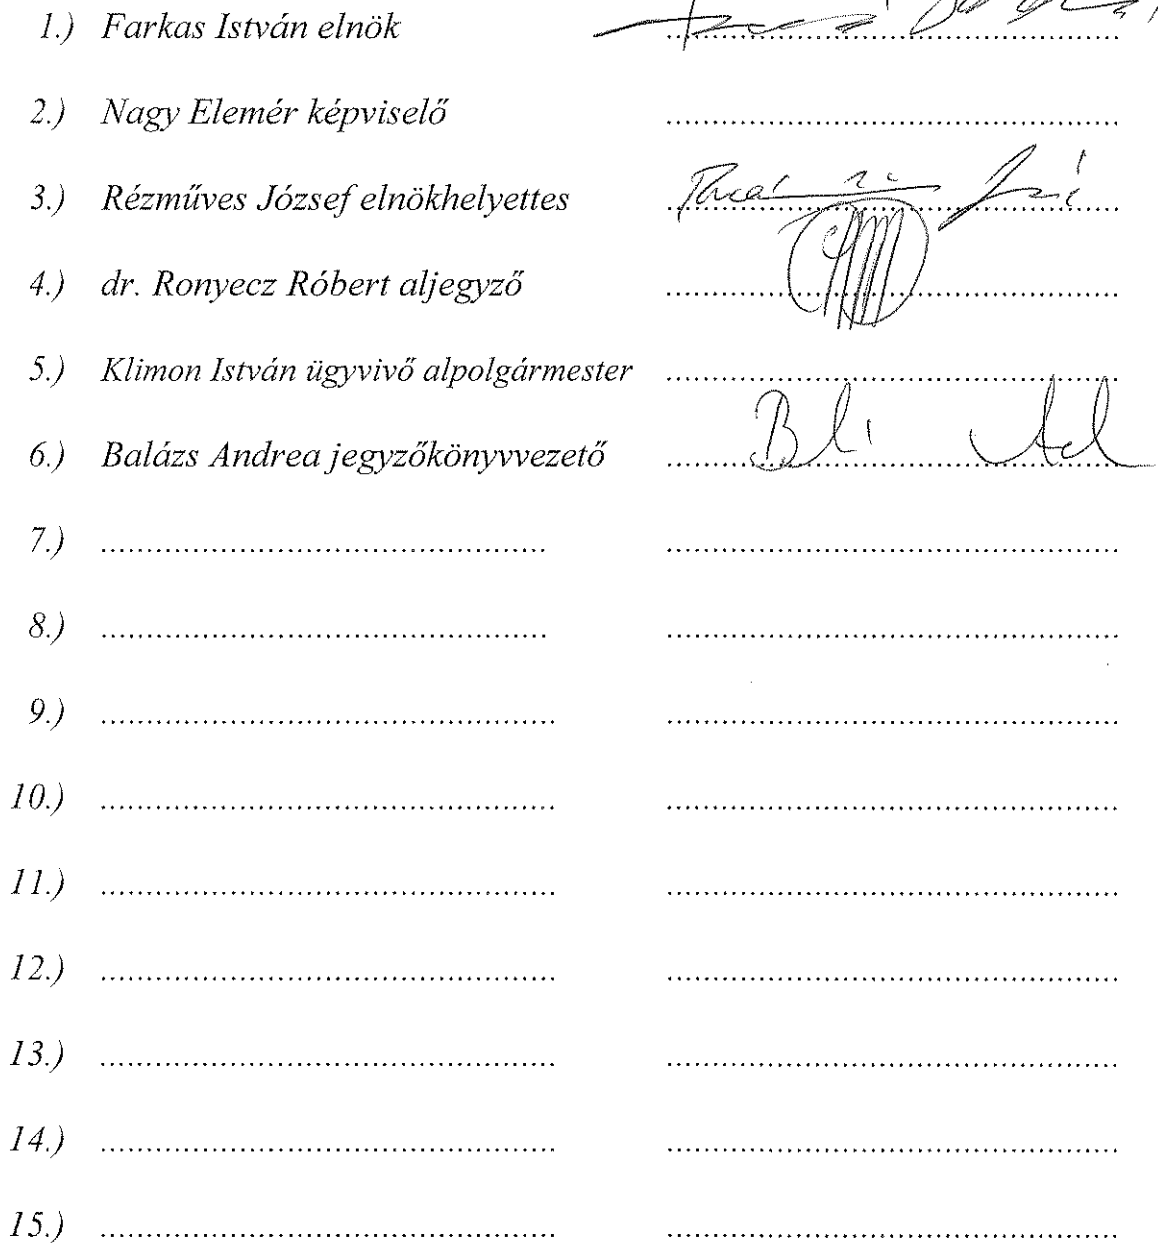 1.) Farkas István elnök ..........
2.) Nagy Elemér képviselő ..........
3.) Rézműves József elnökhelyettes ..........
4.) dr. Ronyecz Róbert aljegyző ..........
5.) Klimon István ügyvivő alpolgármester ..........
6.) Balázs Andrea jegyzőkönyvvezető ..........
7.) .......... ..........
8.) .......... ..........
9.) .......... ..........
10.) .......... ..........
11.) .......... ..........
12.) .......... ..........
13.) .......... ..........
14.) .......... ..........
15.) .......... ..........